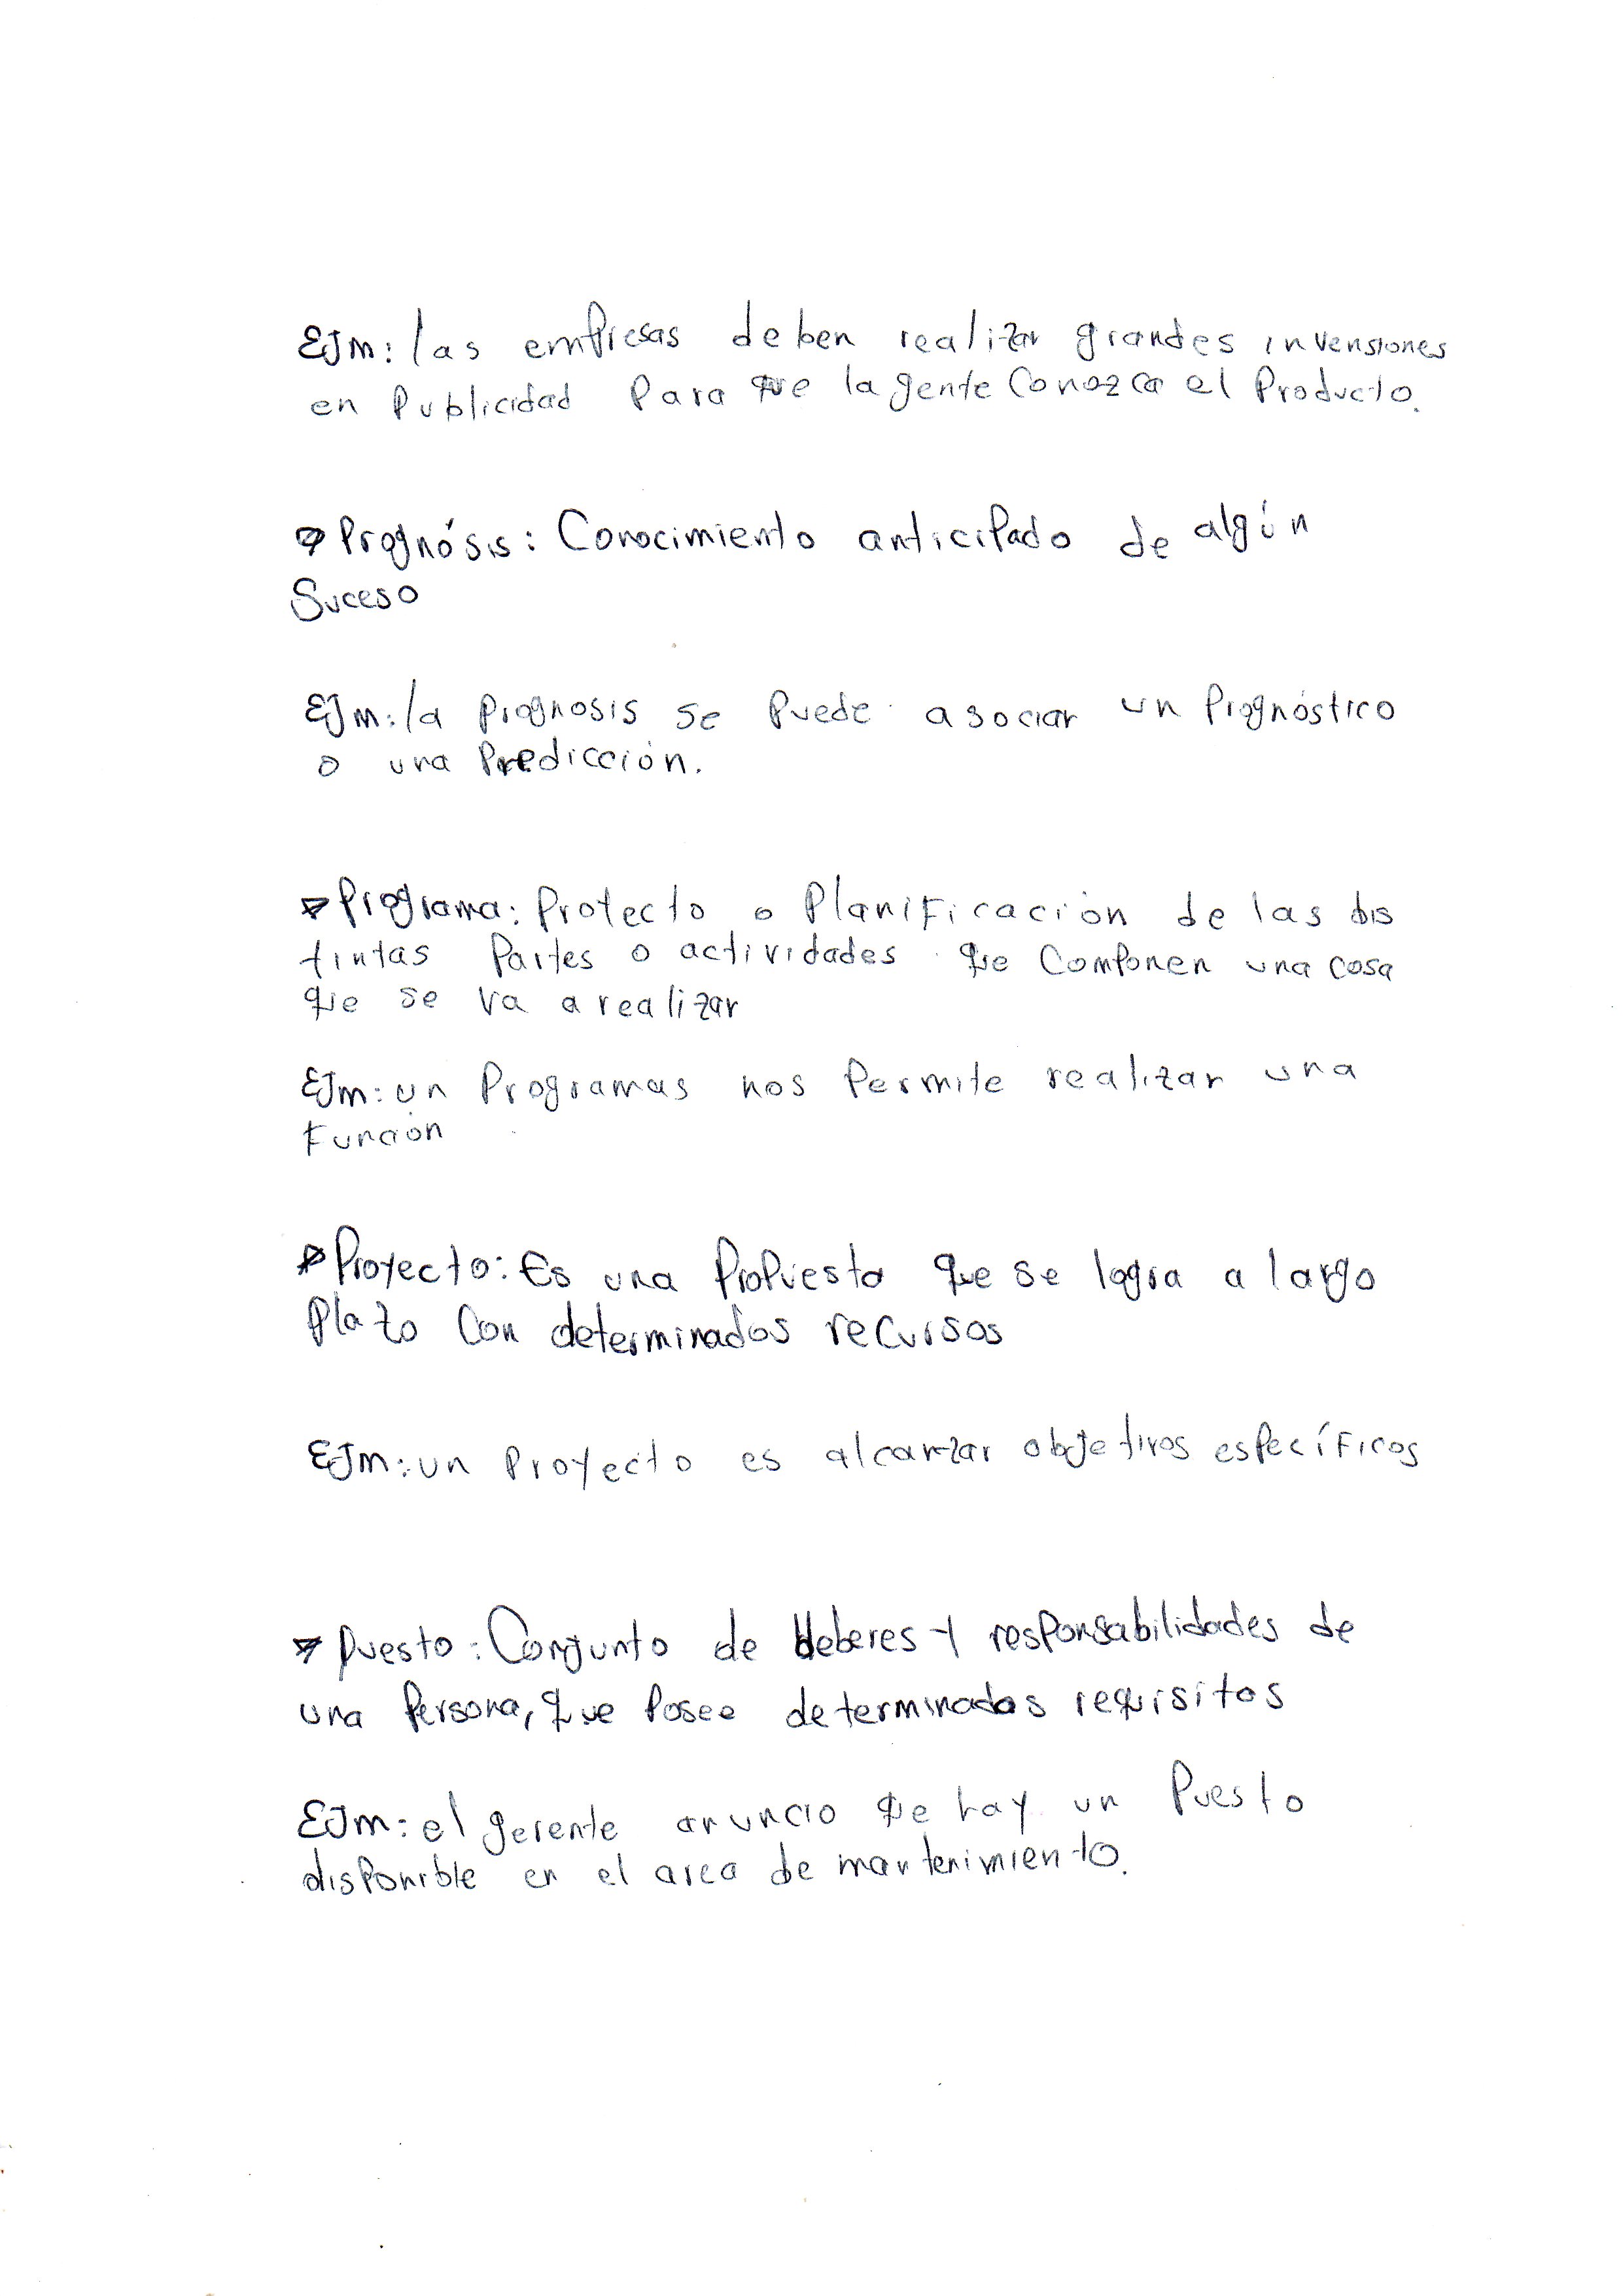 EJm: las empresas deben realizar grandes invensiones
en Publicidad Para que la gente Conozca el Producto.
Prognósis: Conocimiento anticipado de algún
Suceso
EJm: la prognosis se Puede asociar un Prognóstico
o una Predicción.
Programa: Protecto o Planificación de las dis
tintas Partes o actividades que Componen una cosa
que se va a realizar
EJm: un Programas nos Permite realizar una
Función
Proyecto: Es una Propuesta que se logra a largo
Plazo Con determinados recursos
EJm: un Proyecto es alcanzar objetivos específicos
Puesto: Conjunto de deberes y responsabilidades de
una Persona, que Posee determinados requisitos
EJm: el gerente anuncio que hay un Puesto
disponible en el area de mantenimiento.